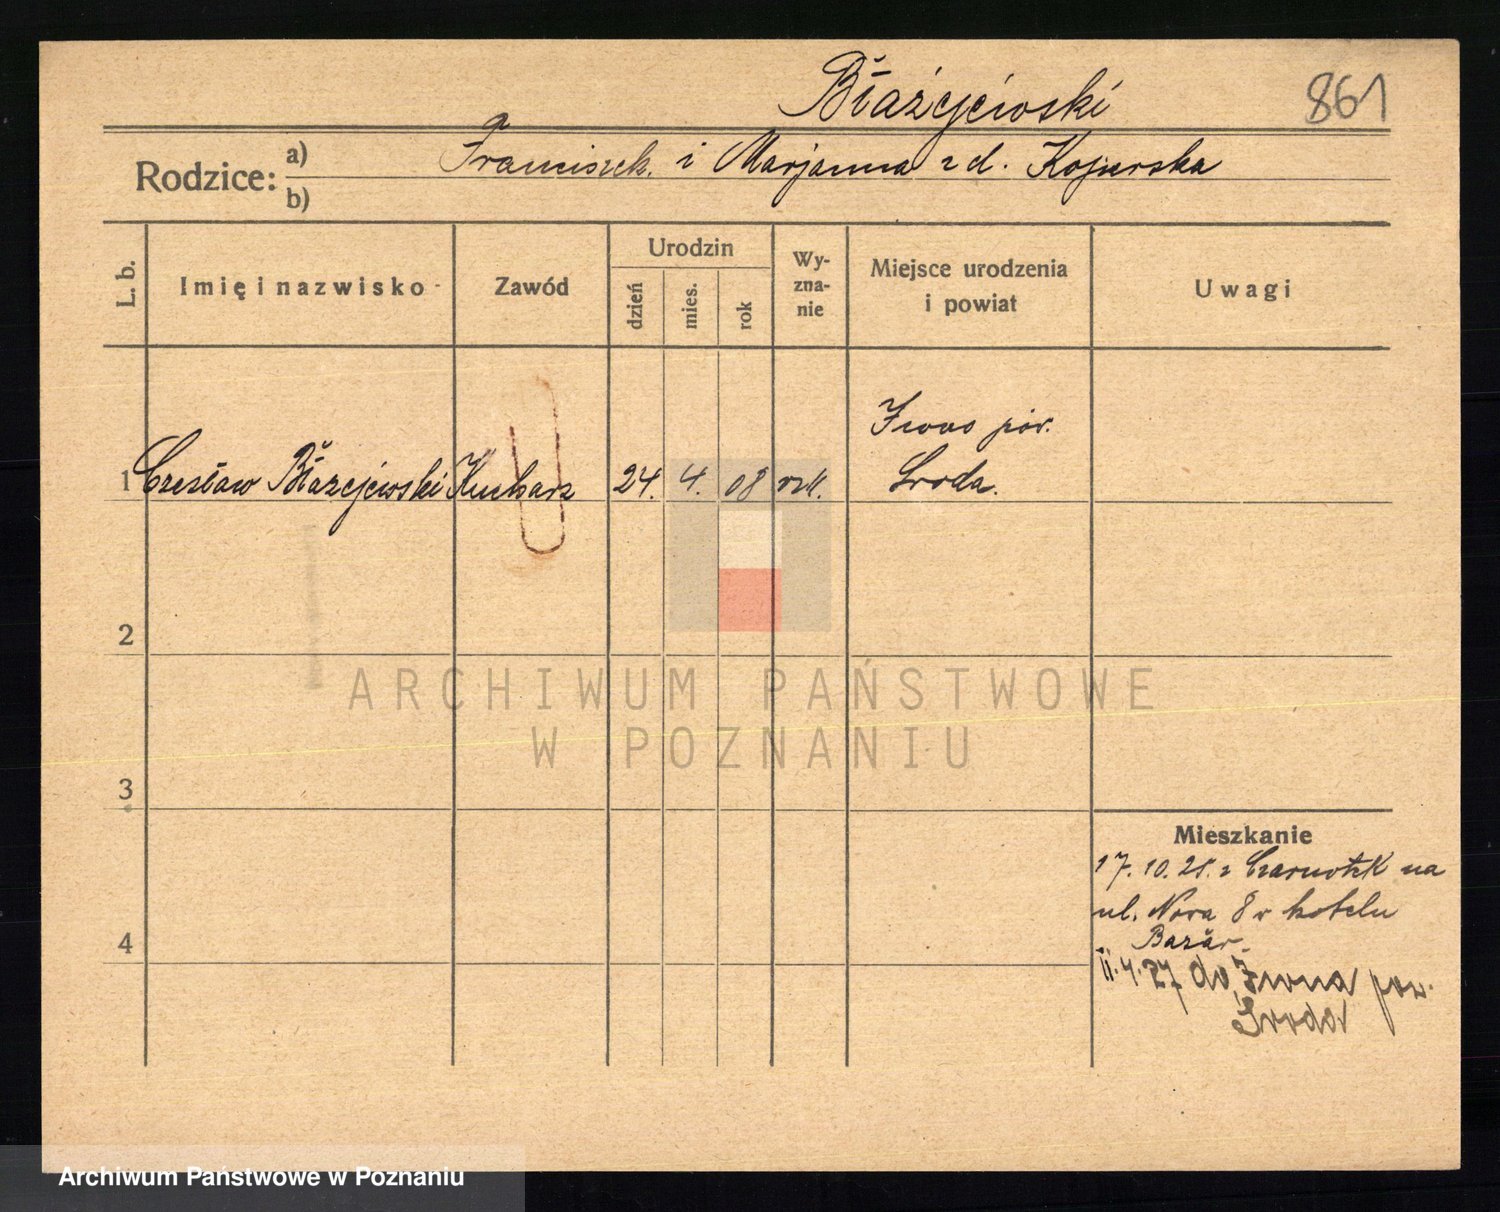 Błażejewski
861
Rodzice: a) b)
Franciszek. i Marjanna z d. Kopierska
L. b.
Imię i nazwisko
Zawód
Urodzin
dzień
mies.
rok
Wy-
zna-
nie
Miejsce urodzenia
i powiat
Uwagi
Iwno pow.
1 Czesław Błażejewski Kucharz 24. 4. 08 rzk. Środa.
2
3
4
Mieszkanie
17. 10. 25. z Czarnotek na
ul. Nowa 8 w hotelu
Bazar.
11.4.27 do Iwna pow.
Środa
ARCHIWUM PAŃSTWOWE
W POZNANIU
Archiwum Państwowe w Poznaniu